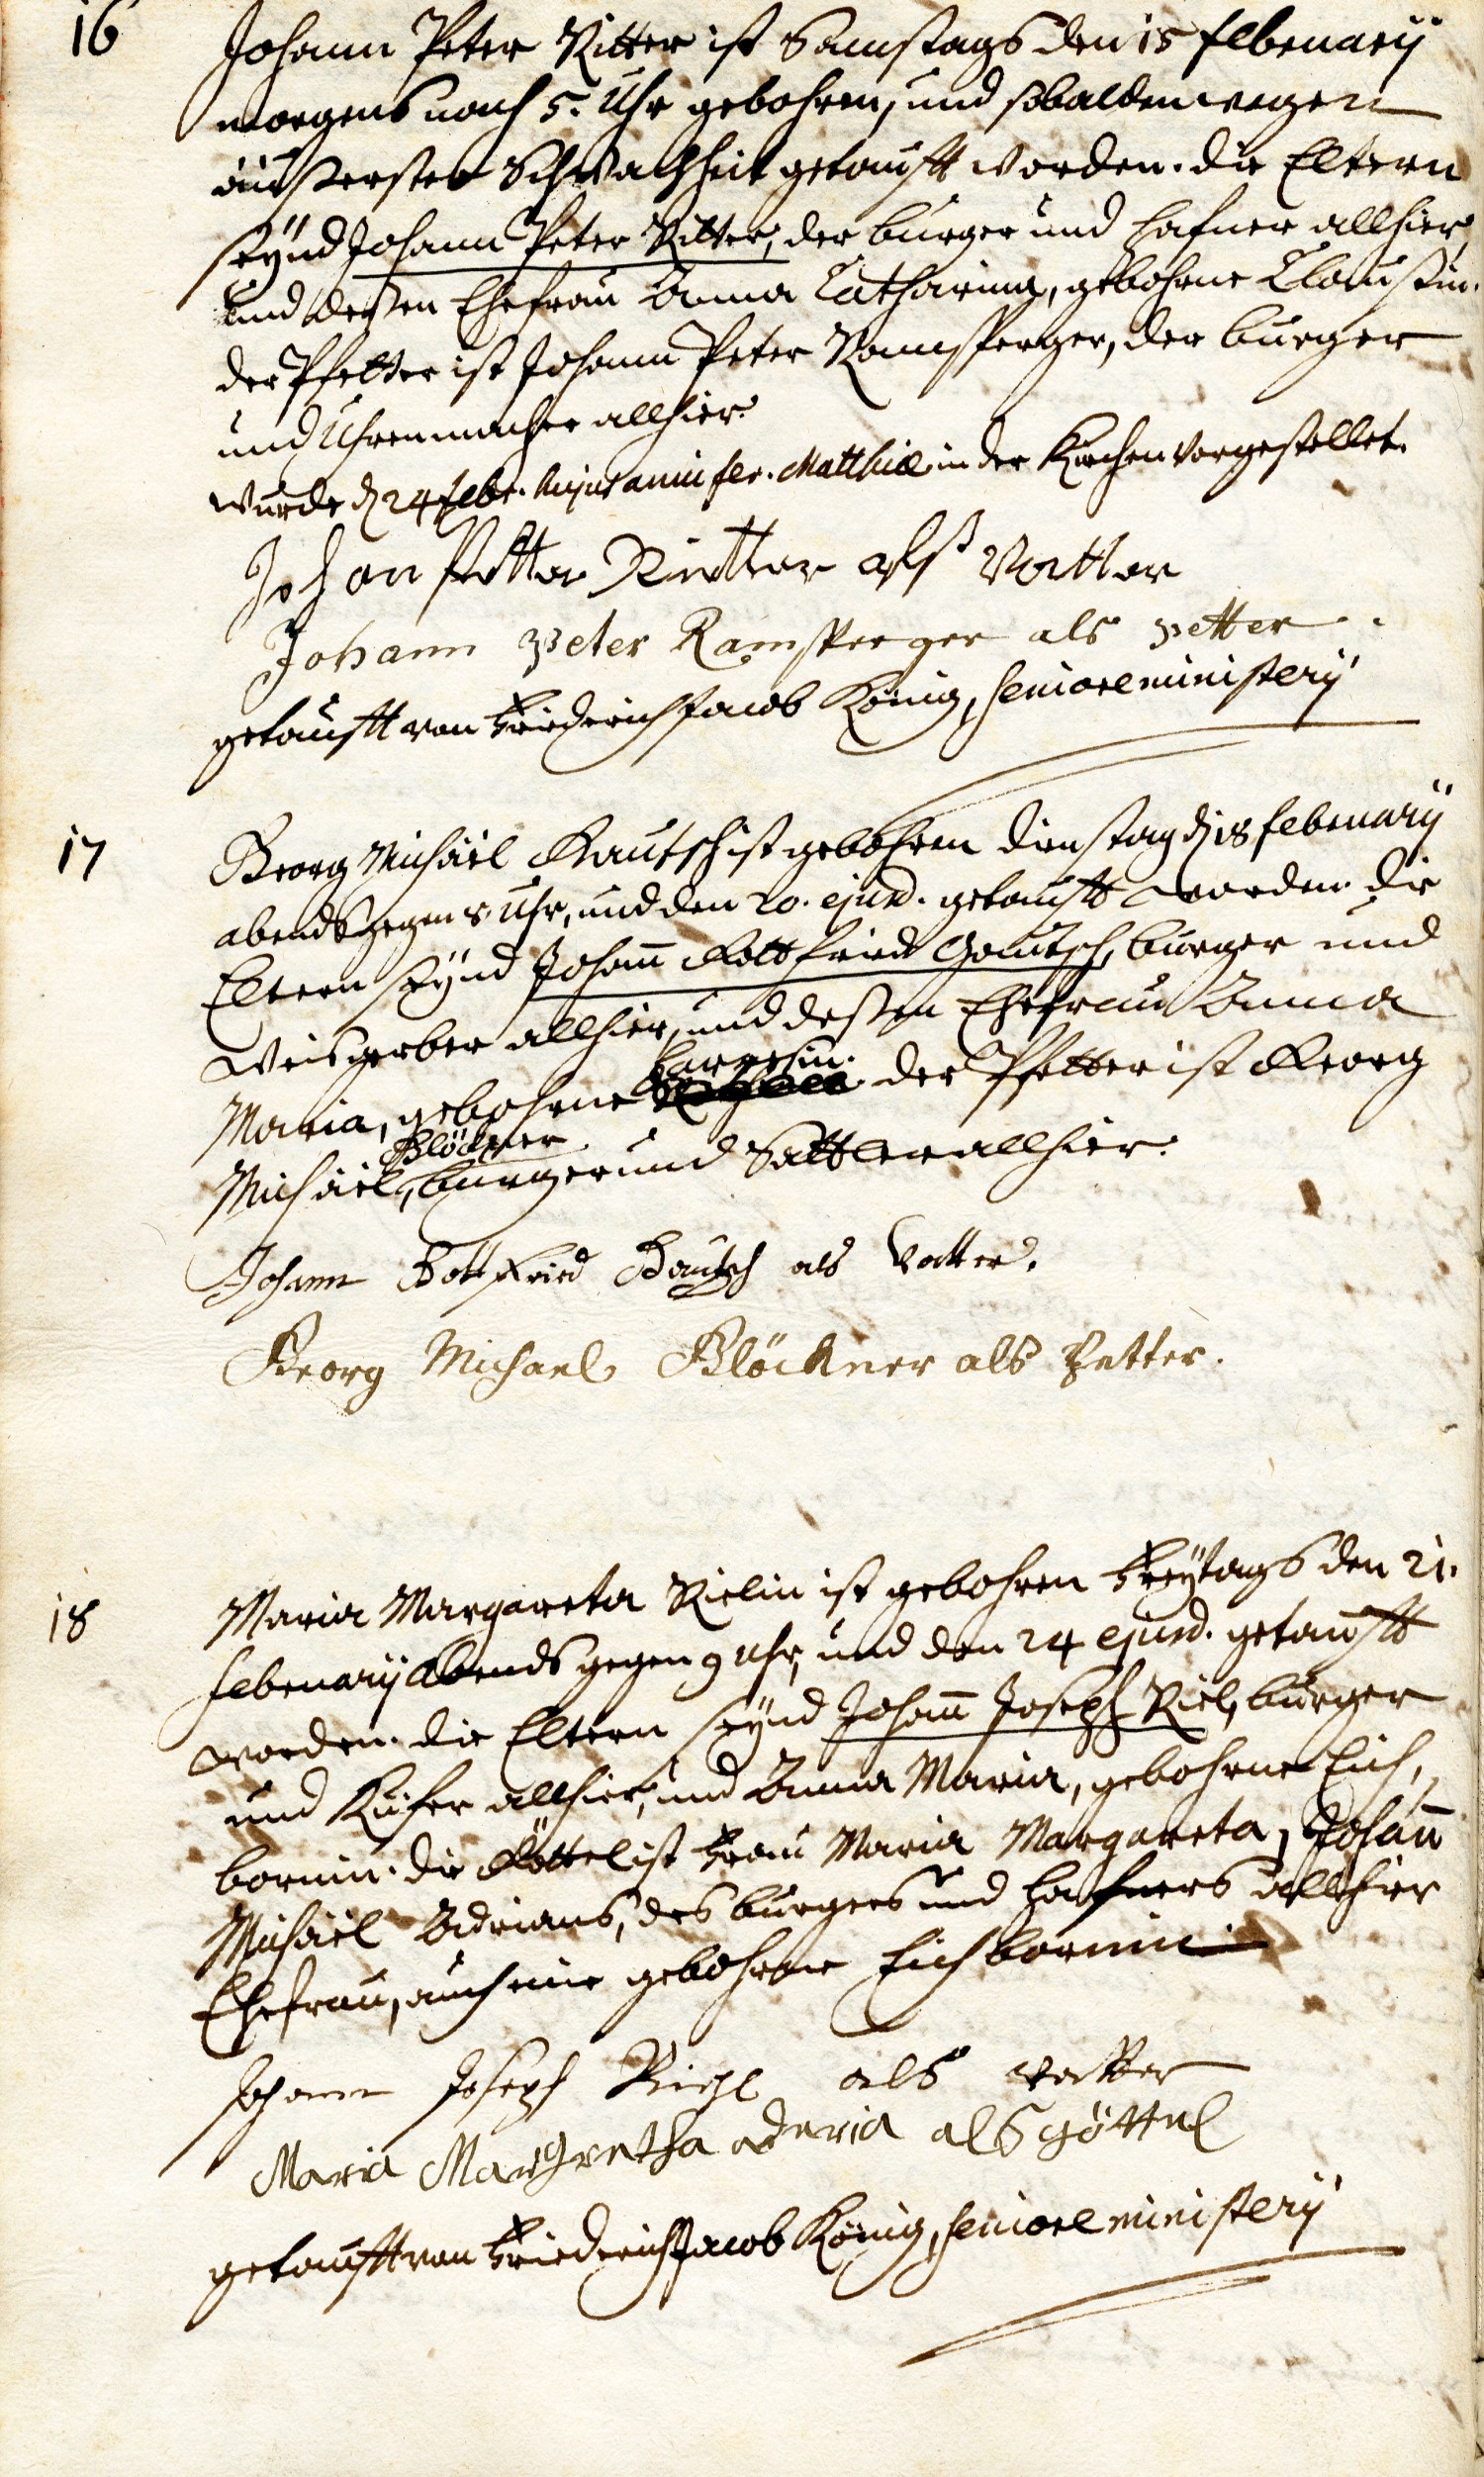 16
Johann Peter Ritter ist Samstags den 15 februarij
morgens nach 5. Uhr gebohren, und sobalden wegen
äusserster Schwachheit getaufft worden. die Eltern
seÿnd Johann Peter Ritter, der burger und hafner allhier,
und dessen Ehefrau Anna Catharina, gebohrne Clausin.
der Pfetter ist Johann Peter Ramsperger, der burger
und Uhrenmacher allhier.
wurde d 24 febr. hujus anni fer. Matthiæ in der Kirchen vorgestellet.
Johan Petter Rietter alß Vatter
Johann Peter Ramsperger als petter.
getaufft von Friederich Jacob König, seniore ministerij
17
Georg Michäel Gautsch ist gebohren dienstag d 18 februarij
abends gegen 8 Uhr, und den 20. ejusd. getaufft worden. die
Eltern seÿnd Johann Gottfried Gautsch, burger und
Weisgerber allhier, und dessen Ehefrau Anna
Maria, gebohrne der Pfetter ist Georg
Michäel Blöckner, burger und Sattler allhier.
Johann Gottfried Gautsch als Vatter.
Georg Michael Blöckner als Petter.
18
Maria Margareta Rielin ist gebohren freÿtags den 21.
februarij Abends gegen 9 Uhr, und den 24 ejusd. getaufft
worden. die Eltern seÿnd Johann Joseph Riel, burger
und Küfer allhier, und Anna Maria, gebohrne Eich,
bornin. die Göttel ist frau Maria Margareta, Johann
Michäel Adrians, des burgers und hafners allhier
Ehefrau, auch eine gebohrne Eichbornin
Johann Joseph Riehl als vatter
Maria Margretha aderia als göttel
getaufft von Friederich Jacob König, seniore ministerij